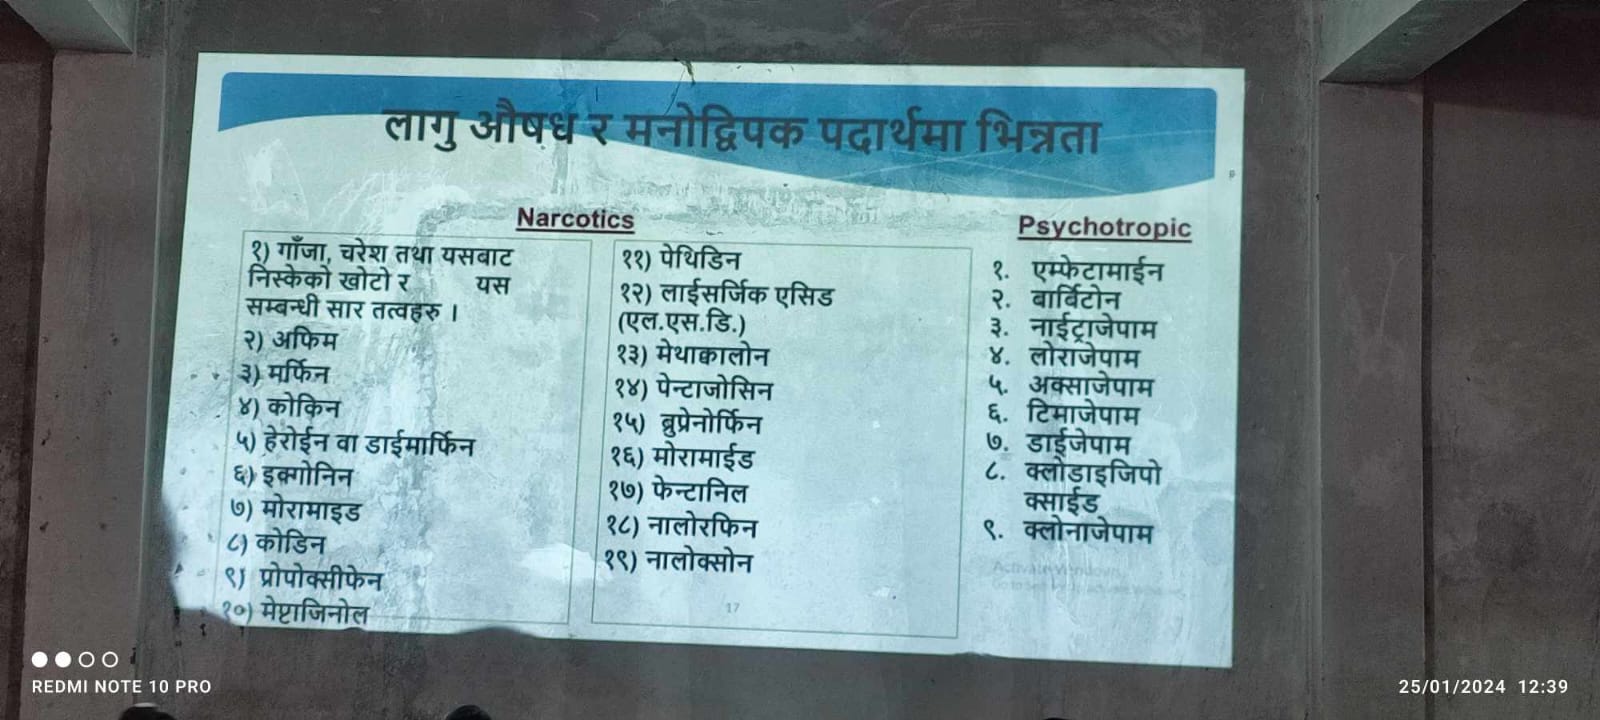 लागु औषध र मनोद्विपक पदार्थमा भिन्नता
Narcotics
१) गाँजा, चरेश तथा यसबाट
निस्केको खोटो र यस
सम्बन्धी सार तत्वहरु ।
२) अफिम
३) मर्फिन
४) कोकिन
५) हेरोईन वा डाईमार्फिन
६) इक्गोनिन
७) मोरामाइड
८) कोडिन
९) प्रोपोक्सीफेन
१०) मेप्टाजिनोल
११) पेथिडिन
१२) लाईसर्जिक एसिड
(एल.एस.डि.)
१३) मेथाक्वालोन
१४) पेन्टाजोसिन
१५) ब्रुप्रेनोर्फिन
१६) मोरामाईड
१७) फेन्टानिल
१८) नालोरफिन
१९) नालोक्सोन
17
Psychotropic
१. एम्फेटामाईन
२. बार्विटोन
३. नाईट्राजेपाम
४. लोराजेपाम
५. अक्साजेपाम
६. टिमाजेपाम
७. डाईजेपाम
८. क्लोडाइजिपो
क्साईड
९. क्लोनाजेपाम
Activate Windows
REDMI NOTE 10 PRO
25/01/2024 12:39